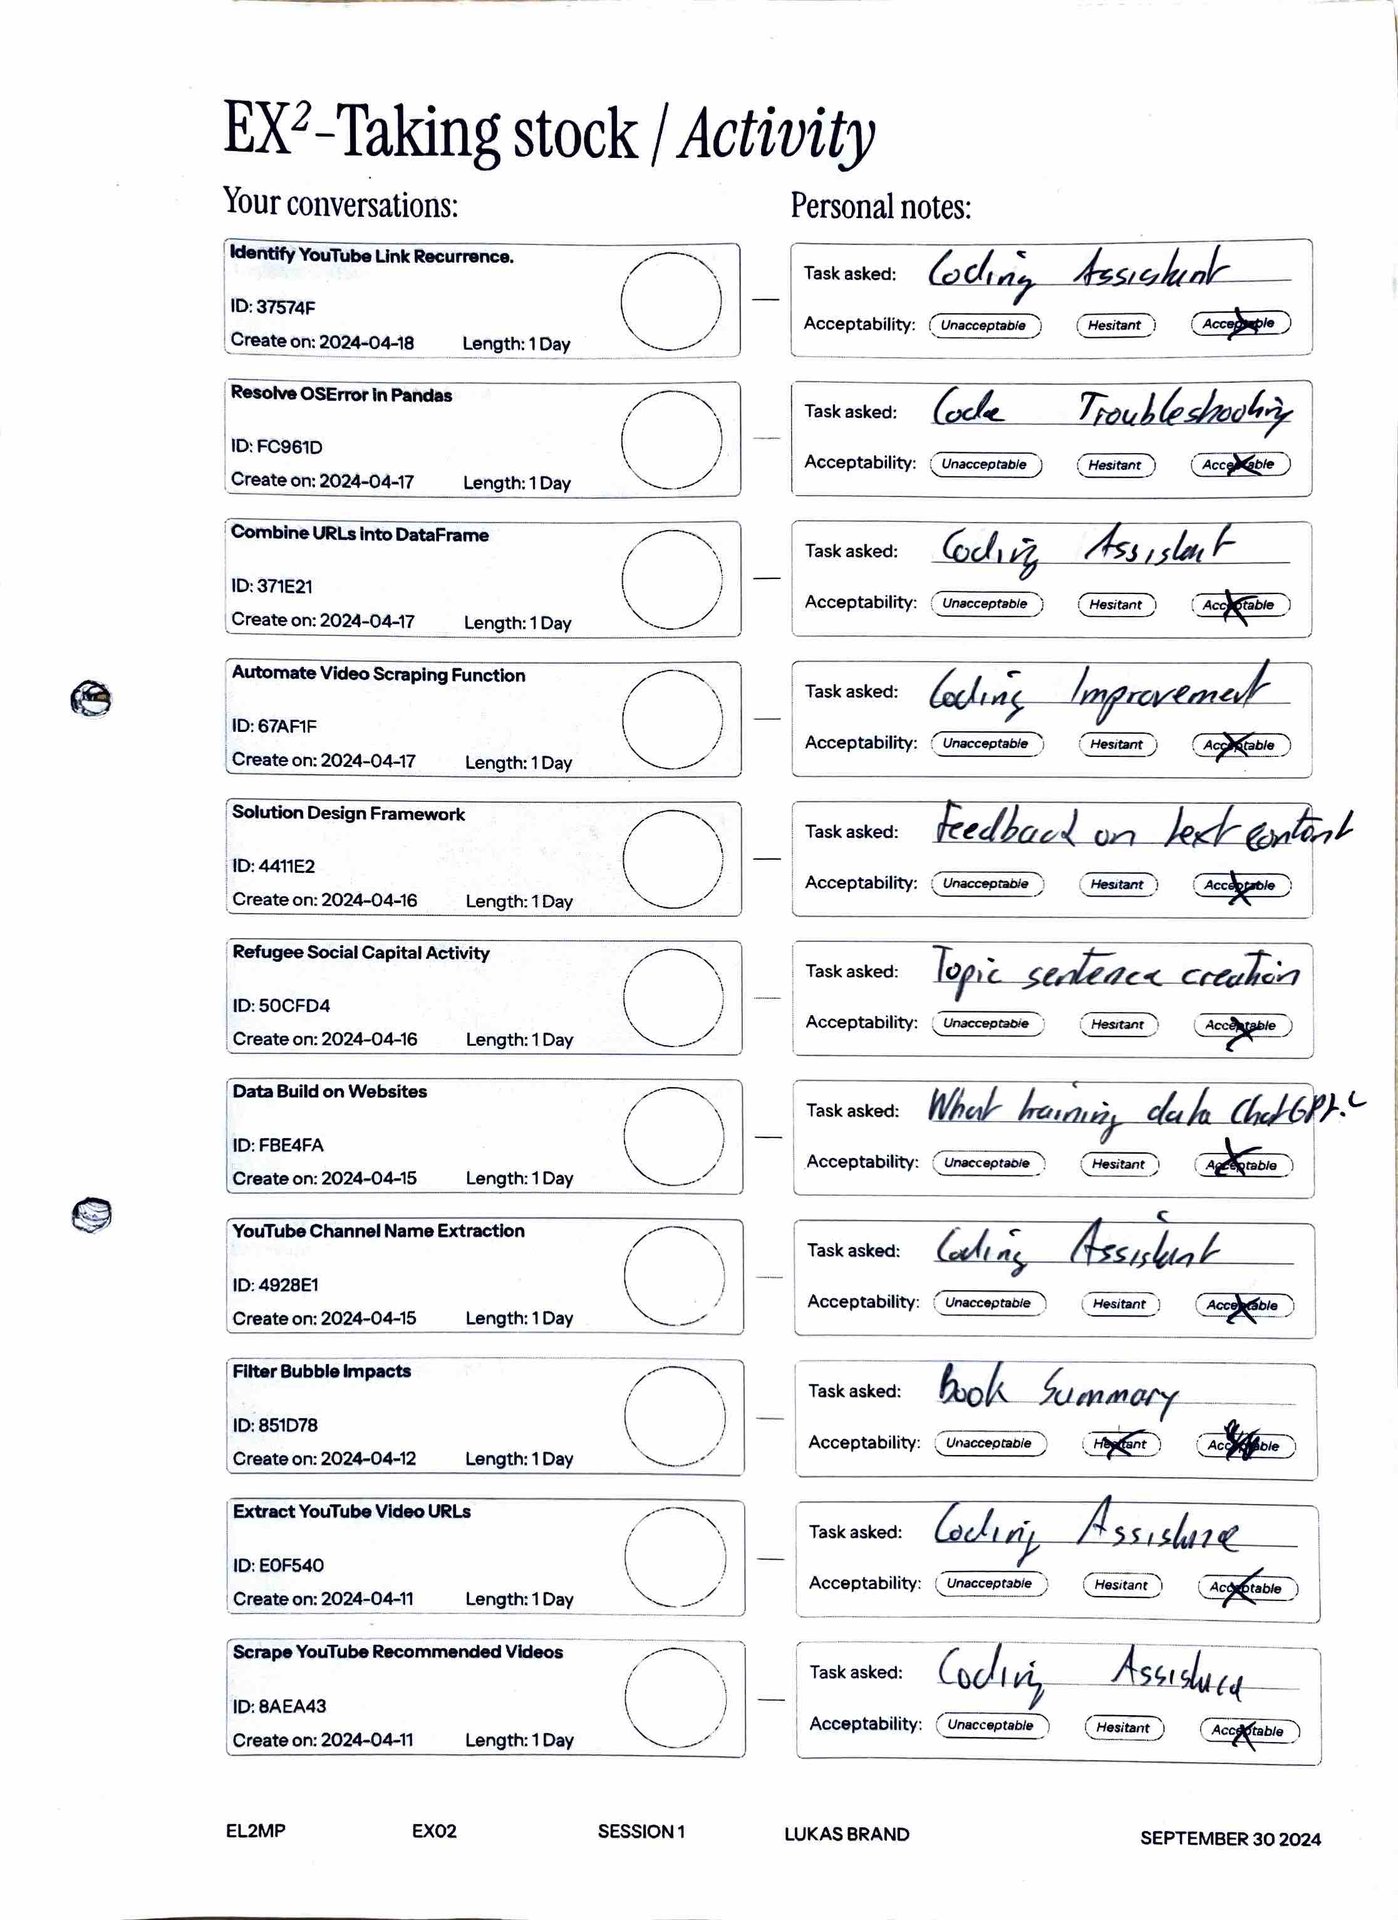 EX²-Taking stock / Activity
Your conversations:
Personal notes:
Identify YouTube Link Recurrence.
ID: 37574F
Create on: 2024-04-18 Length: 1 Day
Task asked: Coding Assistant
Acceptability: Unacceptable Hesitant Acceptable
Resolve OSError in Pandas
ID: FC961D
Create on: 2024-04-17 Length: 1 Day
Task asked: Code Troubleshooting
Acceptability: Unacceptable Hesitant Acceptable
Combine URLs into DataFrame
ID: 371E21
Create on: 2024-04-17 Length: 1 Day
Task asked: Coding Assistant
Acceptability: Unacceptable Hesitant Acceptable
Automate Video Scraping Function
ID: 67AF1F
Create on: 2024-04-17 Length: 1 Day
Task asked: Coding Improvement
Acceptability: Unacceptable Hesitant Acceptable
Solution Design Framework
ID: 4411E2
Create on: 2024-04-16 Length: 1 Day
Task asked: Feedback on text content
Acceptability: Unacceptable Hesitant Acceptable
Refugee Social Capital Activity
ID: 50CFD4
Create on: 2024-04-16 Length: 1 Day
Task asked: Topic sentence creation
Acceptability: Unacceptable Hesitant Acceptable
Data Build on Websites
ID: FBE4FA
Create on: 2024-04-15 Length: 1 Day
Task asked: What training data ChatGPT
Acceptability: Unacceptable Hesitant Acceptable
YouTube Channel Name Extraction
ID: 4928E1
Create on: 2024-04-15 Length: 1 Day
Task asked: Coding Assistant
Acceptability: Unacceptable Hesitant Acceptable
Filter Bubble Impacts
ID: 851D78
Create on: 2024-04-12 Length: 1 Day
Task asked: Book Summary
Acceptability: Unacceptable Hesitant Acceptable
Extract YouTube Video URLs
ID: E0F540
Create on: 2024-04-11 Length: 1 Day
Task asked: Coding Assistance
Acceptability: Unacceptable Hesitant Acceptable
Scrape YouTube Recommended Videos
ID: 8AEA43
Create on: 2024-04-11 Length: 1 Day
Task asked: Coding
Acceptability: Unacceptable Hesitant Acceptable
EL2MP EX02 SESSION 1 LUKAS BRAND SEPTEMBER 30 2024